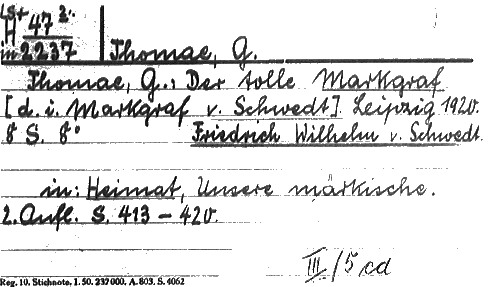 LS+ 2.
H 47
in 2237 Thomae, G.
Thomae, G.: Der tolle Markgraf
[d. i. Markgraf v. Schwedt]. Leipzig 1920.
8 S. 8°
Friedrich Wilhelm v. Schwedt.
in: Heimat, Unsere märkische.
2. Aufl. S. 413 – 420.
III/5 cd
Reg. 10. Stichnote. I. 50. 237000. A. 803. S. 4062